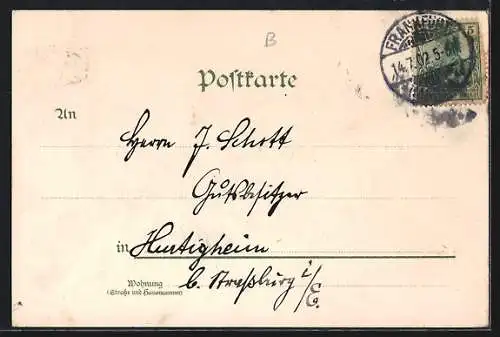 B
Postkarte
FRANKFURT
14.7.02 5-6N
5
An
Herrn J. Schott
Gutsbesitzer
in Hürtigheim
Wohnung
(Straße und Hausnummer)
b. Straßburg i/E.